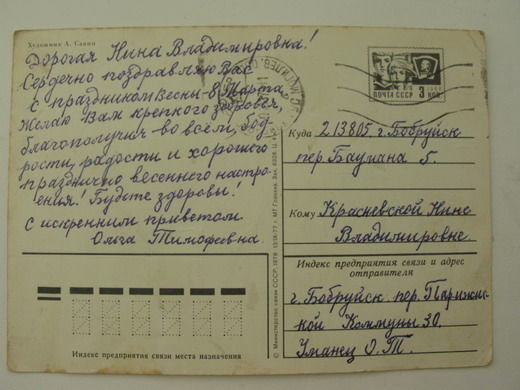 Художник А. Савин
Дорогая Нина Владимировна!
Сердечно поздравляю Вас
с праздником весны - 8 Марта,
Желаю Вам крепкого здоровья,
благополучия - во всём, бод-
рости, радости и хорошего
празднично весеннего настро-
ения! Будьте здоровы!
С искренним приветом
Ольга Тимофеевна.
Индекс предприятия связи места назначения
© Министерство связи СССР, 1978
ПОЧТА СССР 3 КОП
Куда 213805 г. Бобруйск
пер. Баумана 5.
Кому Красневской Нине
Владимировне.
Индекс предприятия связи и адрес
отправителя
г. Бобруйск пер. Парижс-
кой Коммуны 30.
Уманец О. Т.